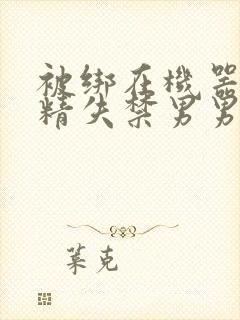 被绑在機器
精失禁男男
葉克